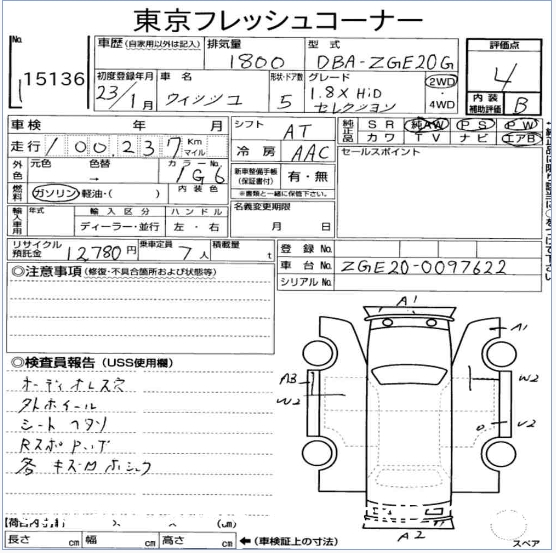 東京フレッシュコーナー
No. 15136
車歴 (自家用以外は記入) 排気量 1800 型式 DBA-ZGE20G
評価点 4
初度登録年月 23/1月 車名 ウィッシュ 形状・ドア数 5 グレード 1.8X HiD セレクション 2WD・4WD
内装補助評価 B
車検 年 月 シフト AT
純正品 SR 純AW PS PW
カワ TV ナビ エアB
走行 100,237 Km マイル 冷房 AAC
セールスポイント
外色 元色 色替 カラーNo. 1G6
内装色
新車整備手帳 (保証書付) 有・無
※書類と一緒に保管下さい。
燃料 ガソリン・軽油・( )
名義変更期限 月 日
輸入車用 年式 輸入区分 ハンドル
ディーラー・並行 左・右
リサイクル預託金 12,780円 乗車定員 7人 積載量 t
登録No.
車台No. ZGE20-0097622
シリアルNo.
◎注意事項 (修復・不具合箇所および状態等)
A1
A1
A3
W2
W2
U2
A2
◎検査員報告 (USS使用欄)
オーディオレス穴
外ホイール
シートヘタリ
各キズ
長さ cm 幅 cm 高さ cm ←(車検証上の寸法)
スペア